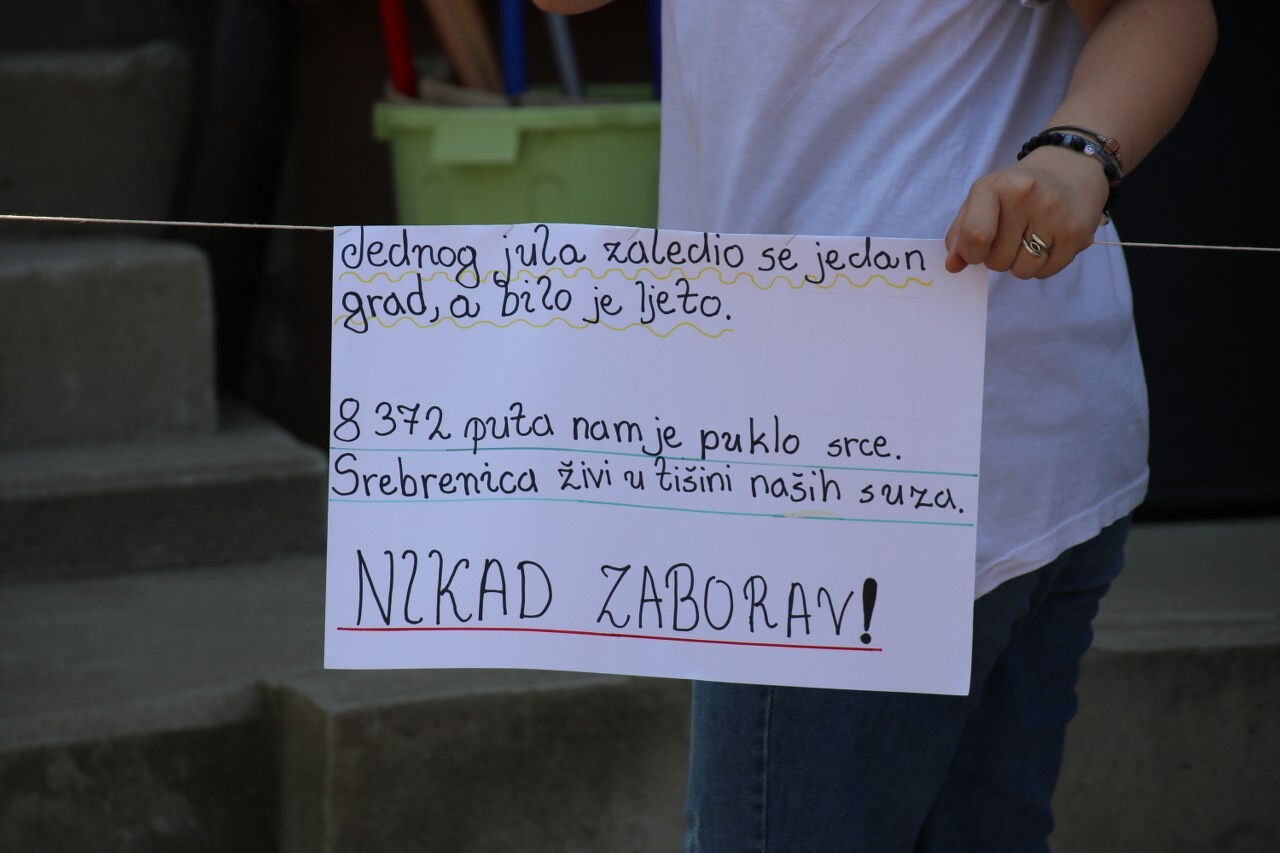 Jednog jula zaledio se jedan
grad, a bilo je ljeto.
8 372 puta nam je puklo srce.
Srebrenica živi u tišini naših suza.
NIKAD ZABORAV!